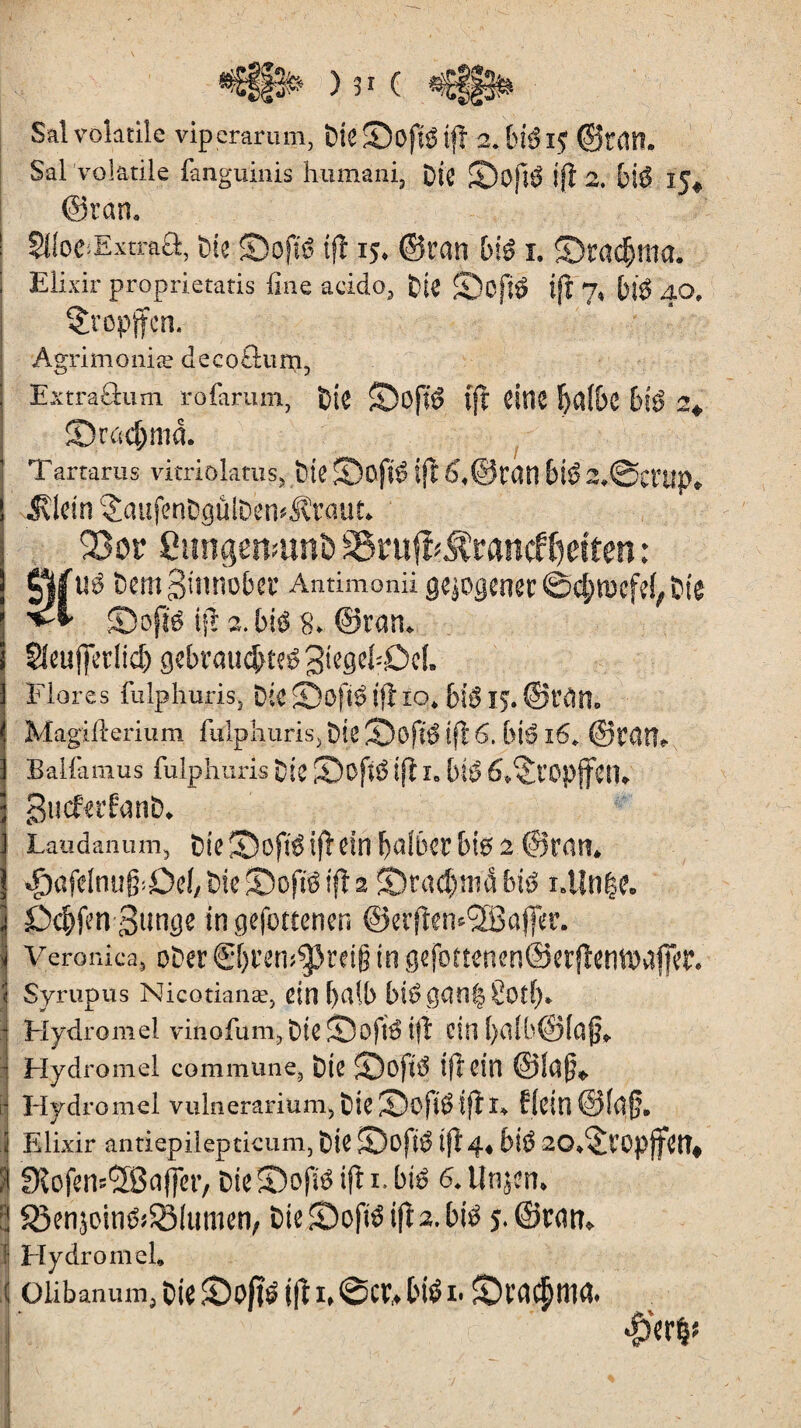 ) 31 (
Sal volatile viperarum, die Dosis ist 2. bis 15 Gran.
Sal volatile sanguinis humani, die Dosis ist 2. bis 15.
Gran.
Aloe-Extract, die Dosis ist 15. Gran bis 1. Drachma.
Elixir proprietatis sine acido, die Dosis ist 7. bis 40.
Tropffen.
Agrimoniæ decoctum,
Extractum rosarum, die Dosis ist eine halbe bis 2.
Drachmä.
Tartarus vitriolatus, die Dosis ist 6. Gran bis 2. Scrup.
Klein Tausendgülden-Kraut.
Vor Lungen- und Brust-Kranckheiten:
Aus dem Zinnober Antimonii gezogener Schwefel, die
Dosis ist 2. bis 8. Gran.
Aeusserlich gebrauchtes Ziegel-Oel.
Flores sulphuris, die Dosis ist 10. bis 15. Gran.
Magisterium sulphuris, die Dosis ist 6. bis 16. Gran.
Balsamus sulphuris die Dosis ist 1. bis 6. Tropffen.
Zuckerkand.
Laudanum, die Dosis ist ein halber bis 2 Gran.
Haselnuß-Oel, die Dosis ist 2 Drachmä bis 1. Untze.
Ochsen Zunge in gesottenen Gersten-Wasser.
Veronica, oder Ehren-Preiß in gesottenen Gerstenwasser.
Syrupus Nicotianæ, ein halb bis gantz Loth.
Hydromel vinosum, die Dosis ist ein halb Glaß.
Hydromel commune, die Dosis ist ein Glaß.
Hydromel vulnerarium, die Dosis ist 1. klein Glaß.
Elixir antiepilepticum, die Dosis ist 4. bis 20. Tropffen.
Rosen-Wasser, die Dosis ist 1. bis 6. Unzen.
Benzoins-Blumen, die Dosis ist 2. bis 5. Gran.
Hydromel.
Olibanum, die Dosis ist 1. Scr. bis 1. Drachma.
Hertz-